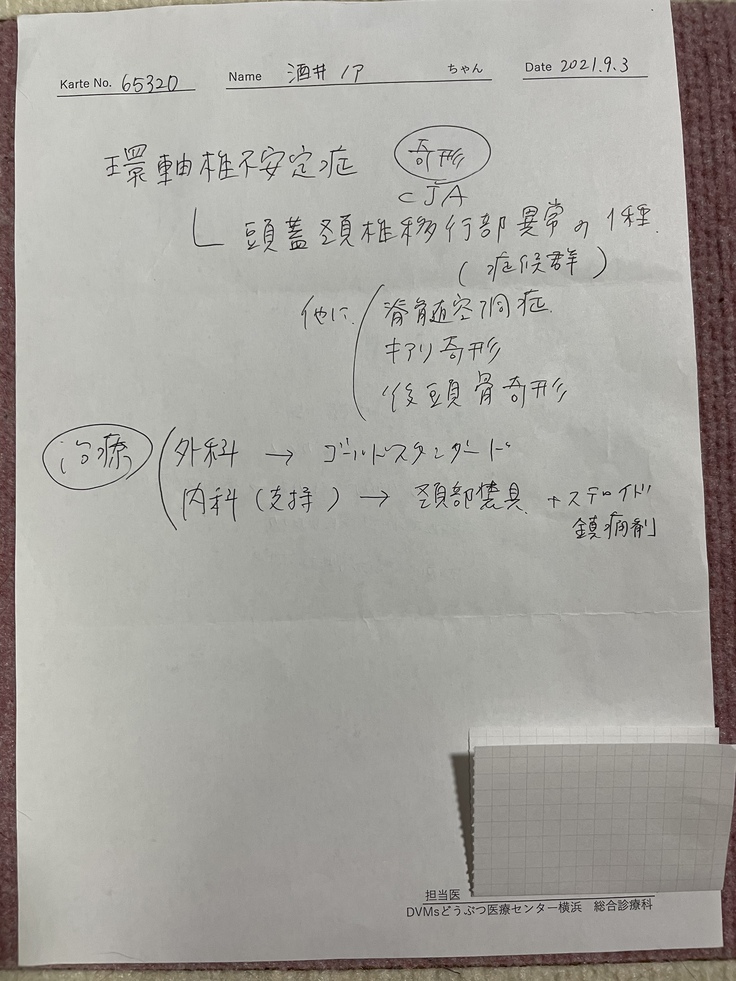 Karte No. 65320 Name 酒井 ノア ちゃん Date 2021.9.3
環軸椎不安定症 奇形
CJA
頭蓋頚椎移行部異常の1種.
(症候群)
他に 脊髄空洞症.
キアリ奇形
後頭骨奇形
治療 外科 → ゴールドスタンダード
内科(支持) → 頚部装具. +ステロイド
鎮痛剤
担当医
DVMsどうぶつ医療センター横浜 総合診療科